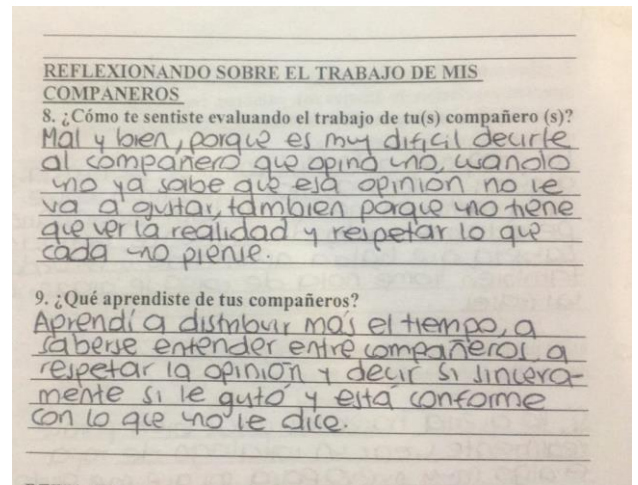 REFLEXIONANDO SOBRE EL TRABAJO DE MIS
COMPAÑEROS
8. ¿Cómo te sentiste evaluando el trabajo de tu(s) compañero (s)?
Mal y bien, porque es muy dificil decirle
al compañero que opina uno, cuando
uno ya sabe que esa opinion no le
va a gustar, tambien porque uno tiene
que ver la realidad y respetar lo que
cada uno piense.
9. ¿Qué aprendiste de tus compañeros?
Aprendí a distribuir más el tiempo, a
saberse entender entre compañeros, a
respetar la opinión y decir si sincera-
mente si le gustó y está conforme
con lo que uno le dice.